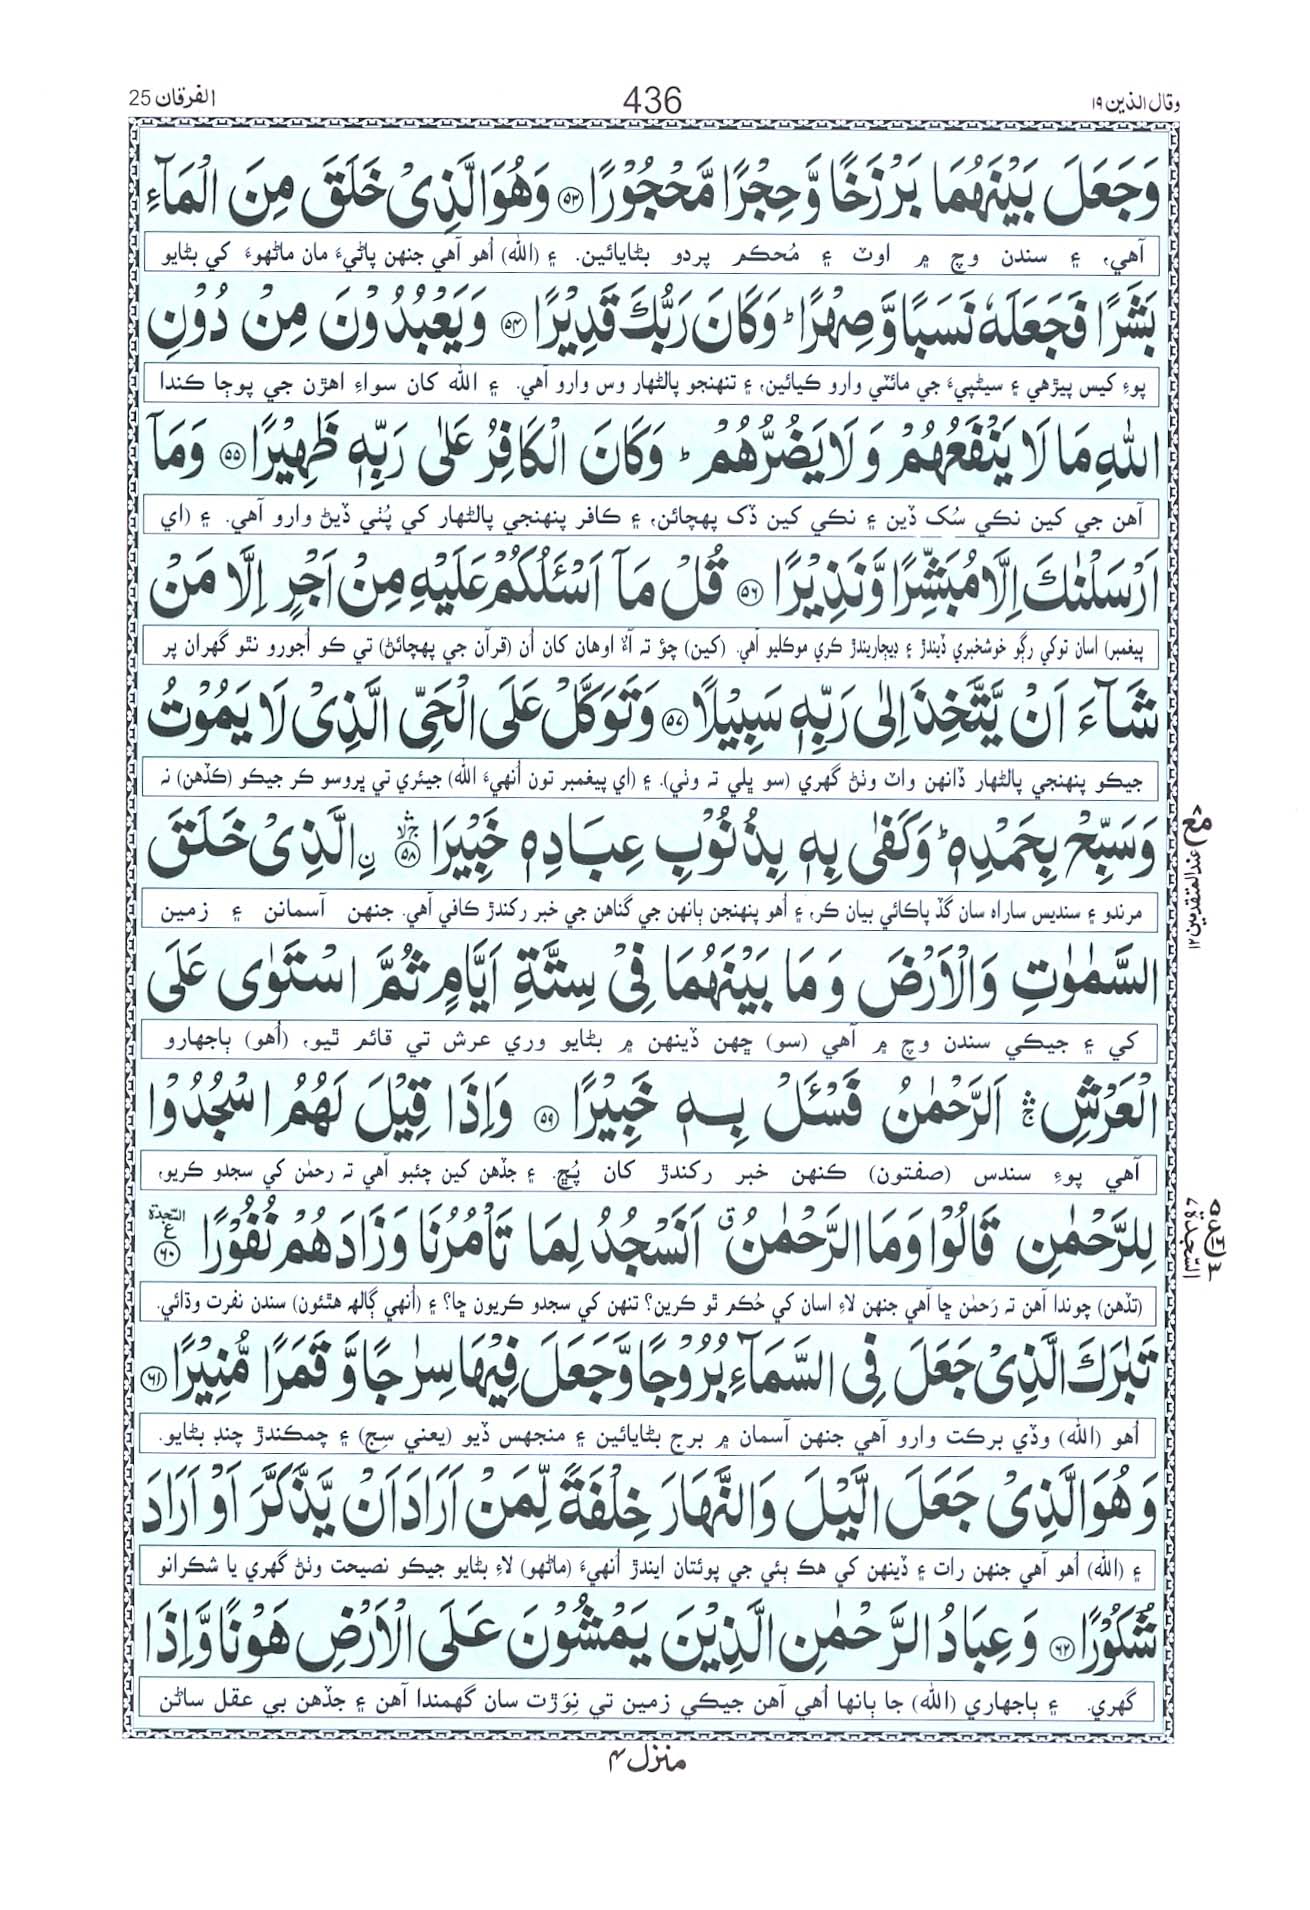 وقال الذين ١٩
436
الفرقان 25
وَجَعَلَ بَيْنَهُمَا بَرْزَخًا وَّحِجْرًا مَّحْجُوْرًا ۝٥٣ وَهُوَ الَّذِىْ خَلَقَ مِنَ الْمَآءِ
آهي، ۽ سندن وچ ۾ اوٽ ۽ مُحڪم پردو بڻايائين. ۽ (الله) اُهو آهي جنهن پاڻيءَ مان ماڻهوءَ کي بڻايو
بَشَرًا فَجَعَلَهٗ نَسَبًا وَّصِهْرًا ؕ وَكَانَ رَبُّكَ قَدِيْرًا ۝٥٤ وَيَعْبُدُوْنَ مِنْ دُوْنِ
پوءِ کيس پيڙهي ۽ سيڻپيءَ جي مائٽي وارو ڪيائين، ۽ تنهنجو پالڻهار وس وارو آهي. ۽ الله کان سواءِ اهڙن جي پوڄا ڪندا
اللّٰهِ مَا لَا يَنْفَعُهُمْ وَلَا يَضُرُّهُمْ ؕ وَكَانَ الْكَافِرُ عَلٰى رَبِّهٖ ظَهِيْرًا ۝٥٥ وَمَآ
آهن جي کين نڪي سُک ڏين ۽ نڪي کين ڏک پهچائن، ۽ ڪافر پنهنجي پالڻهار کي پُٺي ڏيڻ وارو آهي. ۽ (اي
اَرْسَلْنٰكَ اِلَّا مُبَشِّرًا وَّنَذِيْرًا ۝٥٦ قُلْ مَآ اَسْـَٔلُكُمْ عَلَيْهِ مِنْ اَجْرٍ اِلَّا مَنْ
پيغمبر) اسان توکي رڳو خوشخبري ڏيندڙ ۽ ڊيڄاريندڙ ڪري موڪليو آهي. (کين) چؤ ته آءٌ اوهان کان اُن (قرآن جي پهچائڻ) تي ڪو اُجورو نٿو گهران پر
شَآءَ اَنْ يَّتَّخِذَ اِلٰى رَبِّهٖ سَبِيْلًا ۝٥٧ وَتَوَكَّلْ عَلَى الْحَىِّ الَّذِىْ لَا يَمُوْتُ
جيڪو پنهنجي پالڻهار ڏانهن واٽ وٺڻ گهري (سو ڀلي ته وٺي). ۽ (اي پيغمبر تون اُنهيءَ الله) جيئري تي ڀروسو ڪر جيڪو (ڪڏهن) نه
وَسَبِّحْ بِحَمْدِهٖ ؕ وَكَفٰى بِهٖ بِذُنُوْبِ عِبَادِهٖ خَبِيْرًا ۝٥٨ ۙۛۚ نِ الَّذِىْ خَلَقَ
مرندو ۽ سنديس ساراه سان گڏ پاڪائي بيان ڪر، ۽ اُهو پنهنجن ٻانهن جي گناهن جي خبر رکندڙ ڪافي آهي. جنهن آسمانن ۽ زمين
السَّمٰوٰتِ وَالْاَرْضَ وَمَا بَيْنَهُمَا فِىْ سِتَّةِ اَيَّامٍ ثُمَّ اسْتَوٰى عَلَى
کي ۽ جيڪي سندن وچ ۾ آهي (سو) ڇهن ڏينهن ۾ بڻايو وري عرش تي قائم ٿيو، (اُهو) ٻاجهارو
الْعَرْشِ ۛۚ اَلرَّحْمٰنُ فَسْـَٔلْ بِهٖ خَبِيْرًا ۝٥٩ وَاِذَا قِيْلَ لَهُمُ اسْجُدُوْا
آهي پوءِ سندس (صفتون) ڪنهن خبر رکندڙ کان پُڇ. ۽ جڏهن کين چئبو آهي ته رحمٰن کي سجدو ڪريو،
لِلرَّحْمٰنِ قَالُوْا وَمَا الرَّحْمٰنُ ۗ اَنَسْجُدُ لِمَا تَاْمُرُنَا وَزَادَهُمْ نُفُوْرًا ۝٦٠ السّجدة
(تڏهن) چوندا آهن ته رَحمٰن ڇا آهي جنهن لاءِ اسان کي حُڪم ٿو ڪرين؟ تنهن کي سجدو ڪريون ڇا؟ ۽ (اُنهي ڳالهه هٿئون) سندن نفرت وڌائي.
تَبٰرَكَ الَّذِىْ جَعَلَ فِى السَّمَآءِ بُرُوْجًا وَّجَعَلَ فِيْهَا سِرٰجًا وَّقَمَرًا مُّنِيْرًا ۝٦١
اُهو (الله) وڏي برڪت وارو آهي جنهن آسمان ۾ برج بڻايائين ۽ منجهس ڏيو (يعني سِج) ۽ چمڪندڙ چنڊ بڻايو.
وَهُوَ الَّذِىْ جَعَلَ الَّيْلَ وَالنَّهَارَ خِلْفَةً لِّمَنْ اَرَادَ اَنْ يَّذَّكَّرَ اَوْ اَرَادَ
۽ (الله) اُهو آهي جنهن رات ۽ ڏينهن کي هڪ ٻئي جي پوئتان ايندڙ اُنهيءَ (ماڻهو) لاءِ بڻايو جيڪو نصيحت وٺڻ گهري يا شڪرانو
شُكُوْرًا ۝٦٢ وَعِبَادُ الرَّحْمٰنِ الَّذِيْنَ يَمْشُوْنَ عَلَى الْاَرْضِ هَوْنًا وَّاِذَا
گهري. ۽ ٻاجهاري (الله) جا ٻانها اُهي آهن جيڪي زمين تي نِوَڙت سان گهمندا آهن ۽ جڏهن بي عقل ساڻن
منزل ٤
مع عند المتقدمين ١٢
السّجدة ٧